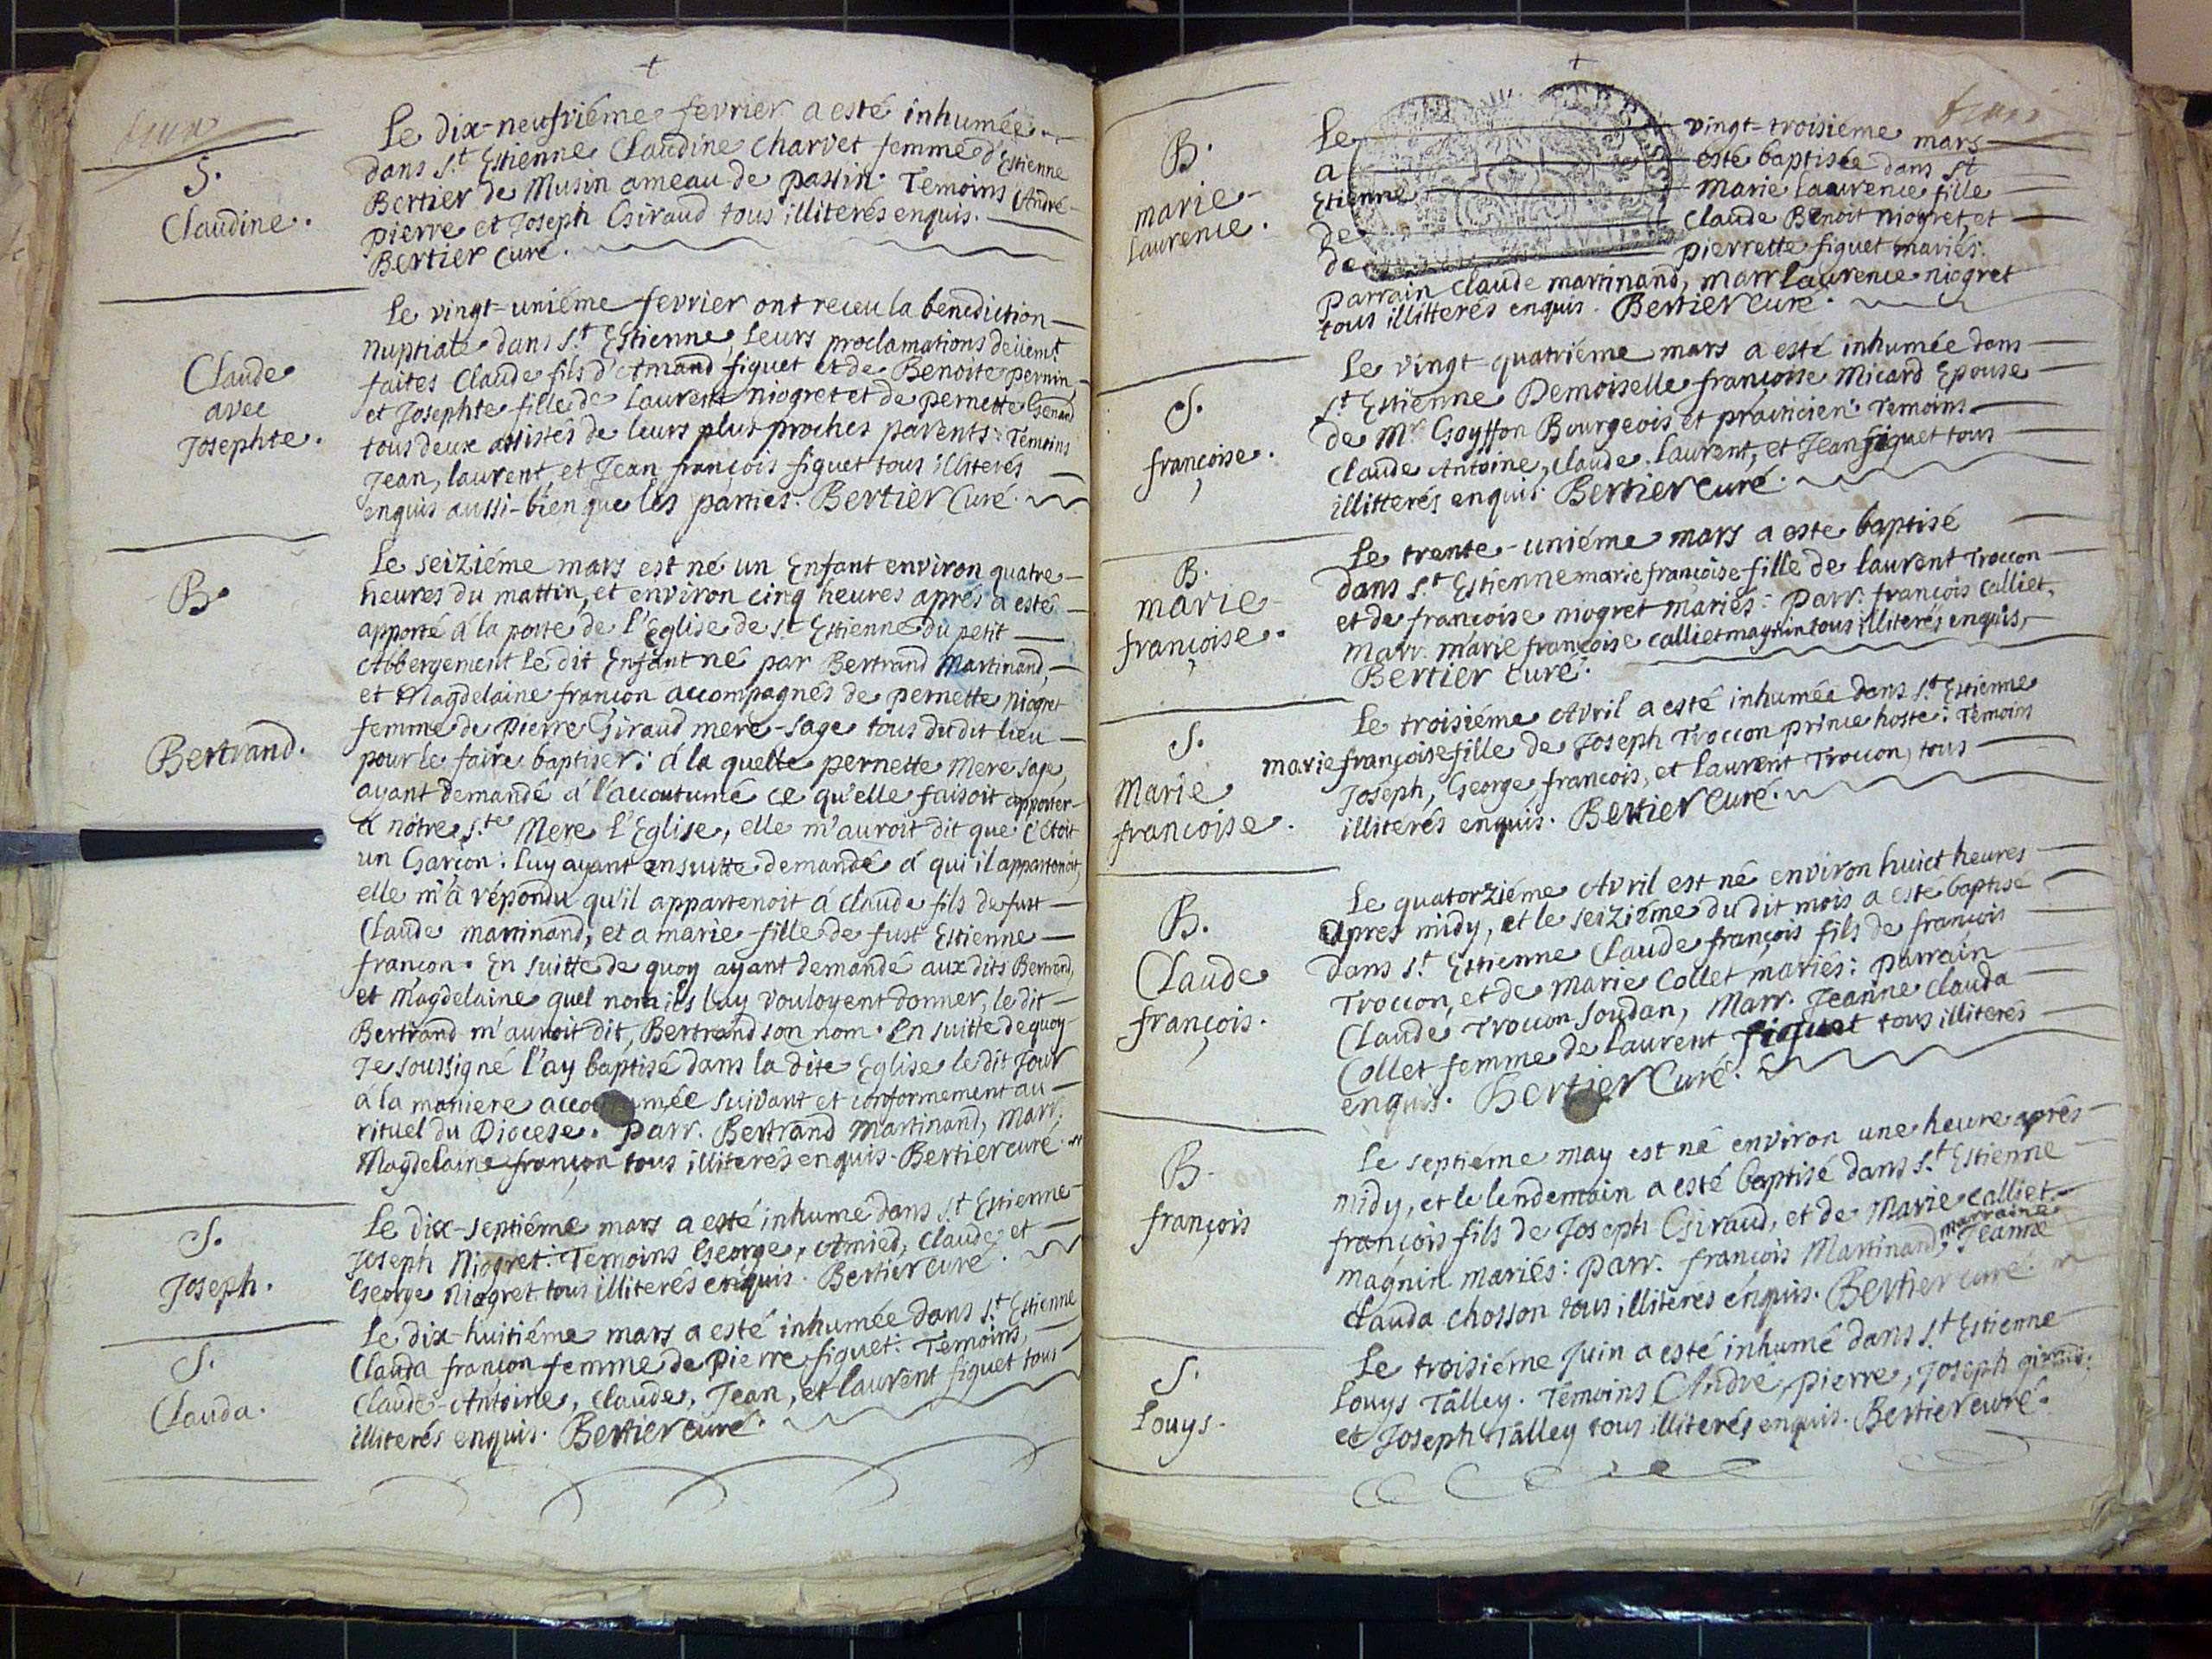 S.
Claudine.
Le dix-neufviéme fevrier a esté inhumée
dans S.t Estienne Claudine Charvet femme d'Estienne
Bertier de Musin ameau de passin. Temoins André
pierre et Joseph Giraud tous illiterés enquis.
Bertier Curé.
Claude
avec
Josephte.
Le vingt-uniéme fevrier ont receu la benediction
Nuptiale dans S.t Estienne, leurs proclamations deüem.t
faites Claude fils d'Amand figuet et de Benoite pernin,
et Josephte fille de Laurent niogret et de pernette
tous deux assistés de leurs plus proches parents: Temoins
Jean, laurent, et Jean françois figuet tous illiterés
enquis aussi-bien que les parties. Bertier Curé.
B.
Bertrand.
Le seiziéme mars est né un Enfant environ quatre
heures du mattin, et environ cinq heures aprés a esté
apporté á la porte de l'Eglise de S.t Estienne du petit
Abbergement le dit Enfant né par Bertrand Martinand,
et Magdelaine françon accompagnés de pernette Niogret
femme de Pierre Giraud mere-sage tous dudit lieu
pour le faire baptiser: á la quelle pernette Mere sage,
ayant demandé á l'accoutumé ce qu'elle faisoit apporter
á nôtre S.te Mere l'Eglise, elle m'auroit dit que c'étoit
un Garçon: luy ayant ensuitte demandé á qui il appartenoit,
elle m'a répondu qu'il appartenoit á Claude fils de fust
Claude martinand, et a marie fille de fust Estienne
françon. En suitte de quoy ayant demandé aux dits Bertrand,
et Magdelaine quel nom ils luy vouloyent donner, le dit
Bertrand m'auroit dit, Bertrand son nom. En suitte de quoy
Je soussigné l'ay baptisé dans la dite Eglise le dit Jour
á la maniere accoutumée suivant et conformement au
rituel du Diocese. Parr. Bertrand Martinand, Marr.
Magdelaine françon tous illiterés enquis. Bertier curé.
S.
Joseph.
Le dix-septiéme mars a esté inhumé dans S.t Estienne
Joseph Niogret: Temoins George, Amied, Claude et
George Niogret tous illiterés enquis. Bertier curé.
S.
Clauda.
Le dix-huitiéme mars a esté inhumée dans S.t Estienne
Clauda françon femme de Pierre figuet: Temoins,
Claude-Antoine, Claude, Jean, et laurent figuet tous
illiterés enquis. Bertier curé.
B.
marie
laurence.
Le vingt-troisiéme mars
a esté baptisée dans S.t
Etienne Marie laurence fille
de Claude Benoit niogret, et
de pierrette figuet mariés.
Parrain Claude martinand, marr laurence niogret
tous illitterés enquis. Bertier Curé.
S.
françoise.
Le vingt-quatriéme mars a esté inhumée dans
S.t Estienne Demoiselle françoise Micard Epouse
de M.r Goyffon Bourgeois et praticien: Temoins
Claude Antoine, Claude, laurent, et Jean figuet tous
illitterés enquis. Bertier curé.
B.
marie
françoise.
Le trente-uniéme mars a esté baptisé
dans S.t Estienne marie françoise fille de laurent Troccon
et de françoise niogret mariés: Parr. françois Calliet,
Marr. marie françoise calliet magnin tous illiterés enquis,
Bertier curé.
S.
Marie
françoise.
Le troisiéme Avril a esté inhumée dans S.t Estienne
marie françoise fille de Joseph Troccon prince hoste: Temoins
Joseph, George françois, et laurent Troccon, tous
illiterés enquis. Bertier Curé.
B.
Claude
françois.
Le quatorziéme Avril est né environ huict heures
apres midy, et le seiziéme du dit mois a esté baptisé
dans S.t Estienne Claude françois fils de françois
Troccon, et de Marie Collet mariés: parrain
Claude Troccon soudan, Marr. Jeanne Clauda
Collet femme de laurent figuet tous illiterés
enquis. Bertier Curé.
B.
françois
Le septiéme may est né environ une heure aprés
midy, et le lendemain a esté baptisé dans S.t Estienne
françois fils de Joseph Giraud, et de Marie calliet
magnin mariés: parr. françois Martinand, marraine Jeanne
Clauda chosson tous illiterés enquis. Bertier curé.
S.
Louys.
Le troisiéme Juin a esté inhumé dans S.t Estienne
Louys Tâlley. Témoins André, pierre, Joseph giraud,
et Joseph Tâlley tous illiterés enquis. Bertier curé.